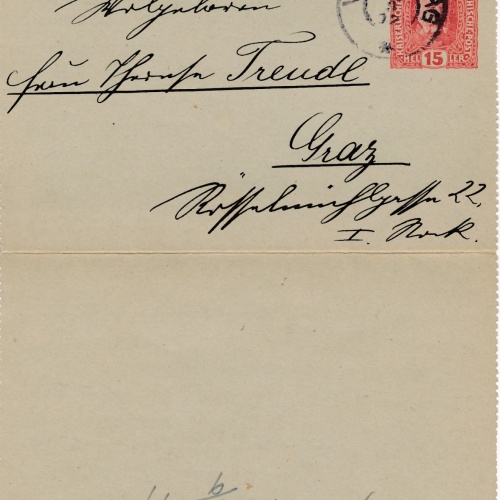 Wolgeboren
Frau Therese Treudl
Graz
Rösselmühlgasse 22.
I. Stock.
KAISERLICHE
15
HELLER